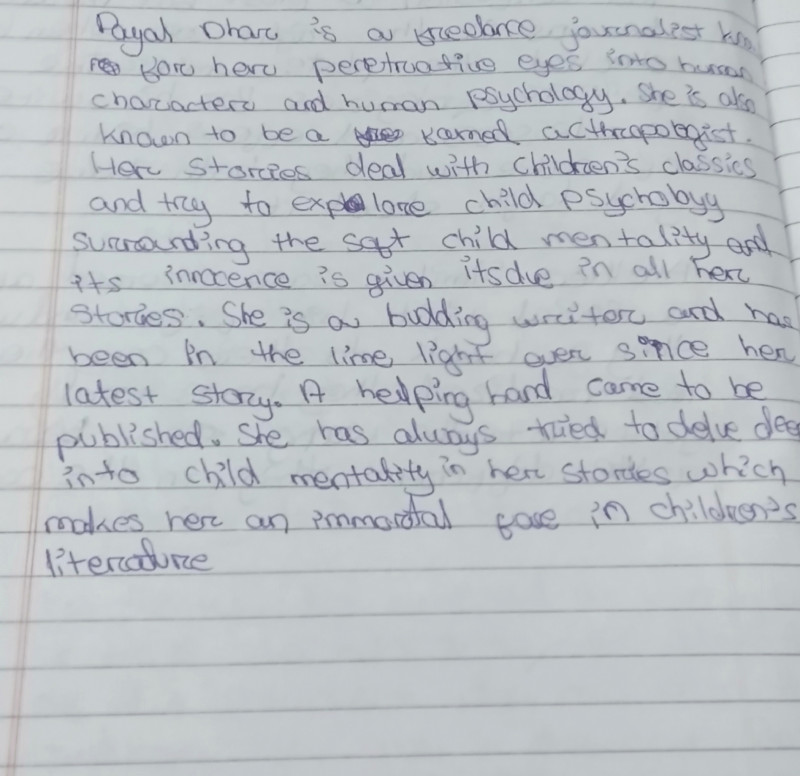 Payal Dhar is a freelance journalist kn
for her penetruative eyes into human
character and human psychology. She is also
known to be a famed acthropologist.
Her stories deal with children's classics
and try to explore child psychology
surrounding the soft child mentality and
its innocence is given its due in all her
stories. She is a budding writer and has
been in the lime light ever since her
latest story. A helping hand came to be
published. She has always tried to delve deep
into child mentality in her stories which
makes her an immortal face in children's
literature